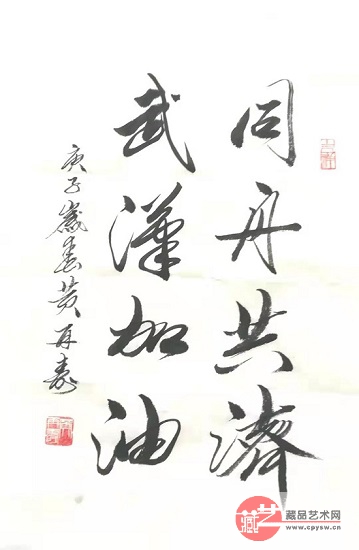 同舟共濟
武漢加油
庚子歲春黄再春
藏品艺术网
www.cpysw.cn